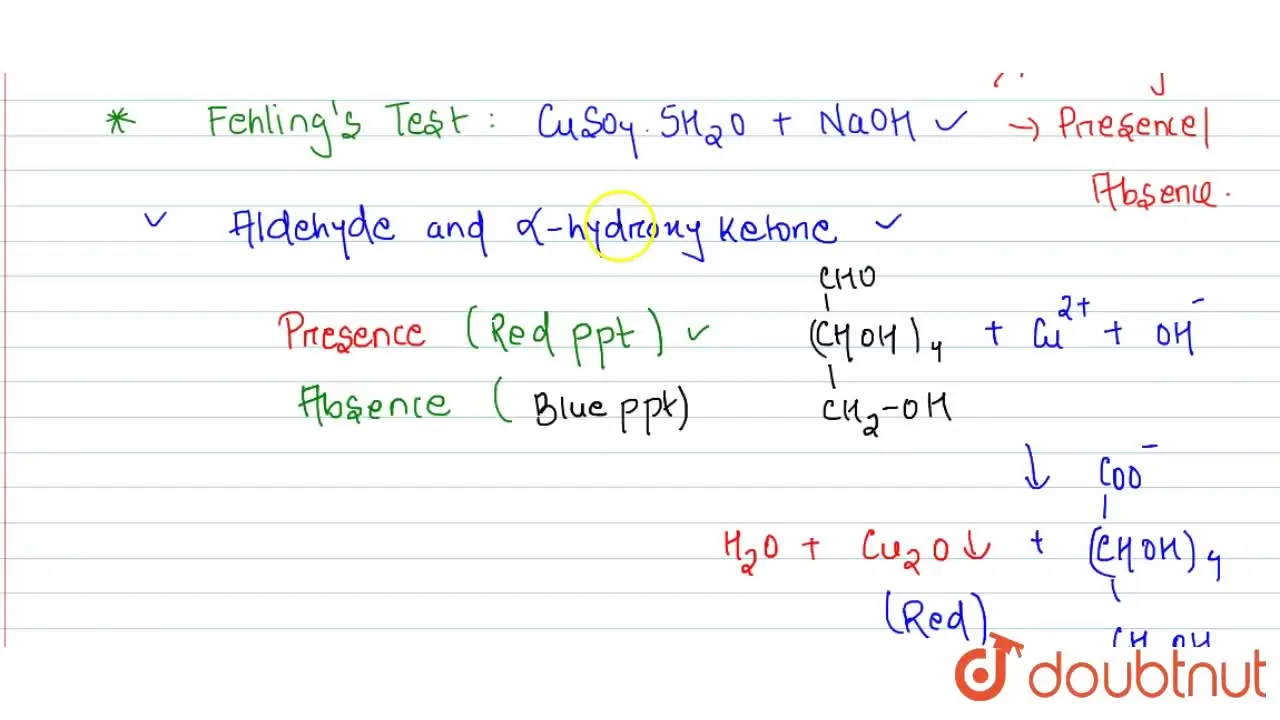 * Fehling's Test : CuSO4. 5H2O + NaOH ✓ → Presence/
Absence.
✓ Aldehyde and α-hydroxy ketone ✓
Presence (Red ppt) ✓
Absence (Blue ppt)
CHO
(CHOH)4 + Cu2+ + OH-
CH2-OH
↓ COO-
H2O + Cu2O↓ + (CHOH)4
(Red)
CH2OH
doubtnut